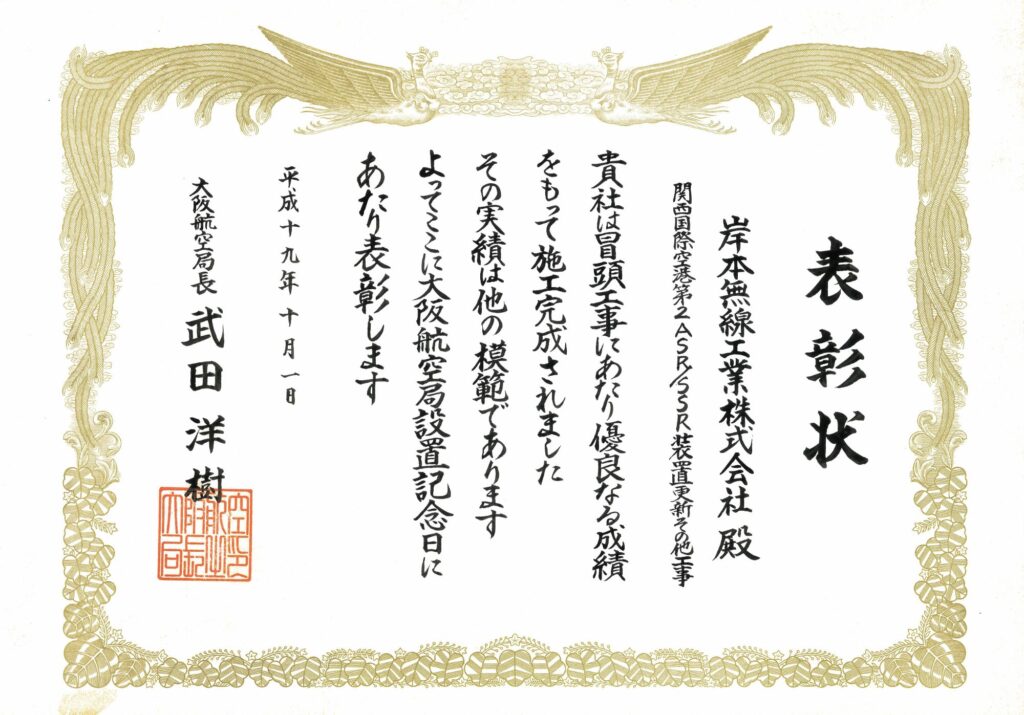 表彰状
岸本無線工業株式会社 殿
関西国際空港第2ASR/SSR装置更新その他工事
貴社は冒頭工事にあたり優良なる成績
をもって施工完成されました
その実績は他の模範であります
よってここに大阪航空局設置記念日に
あたり表彰します
平成十九年十月一日
大阪航空局長 武田洋樹